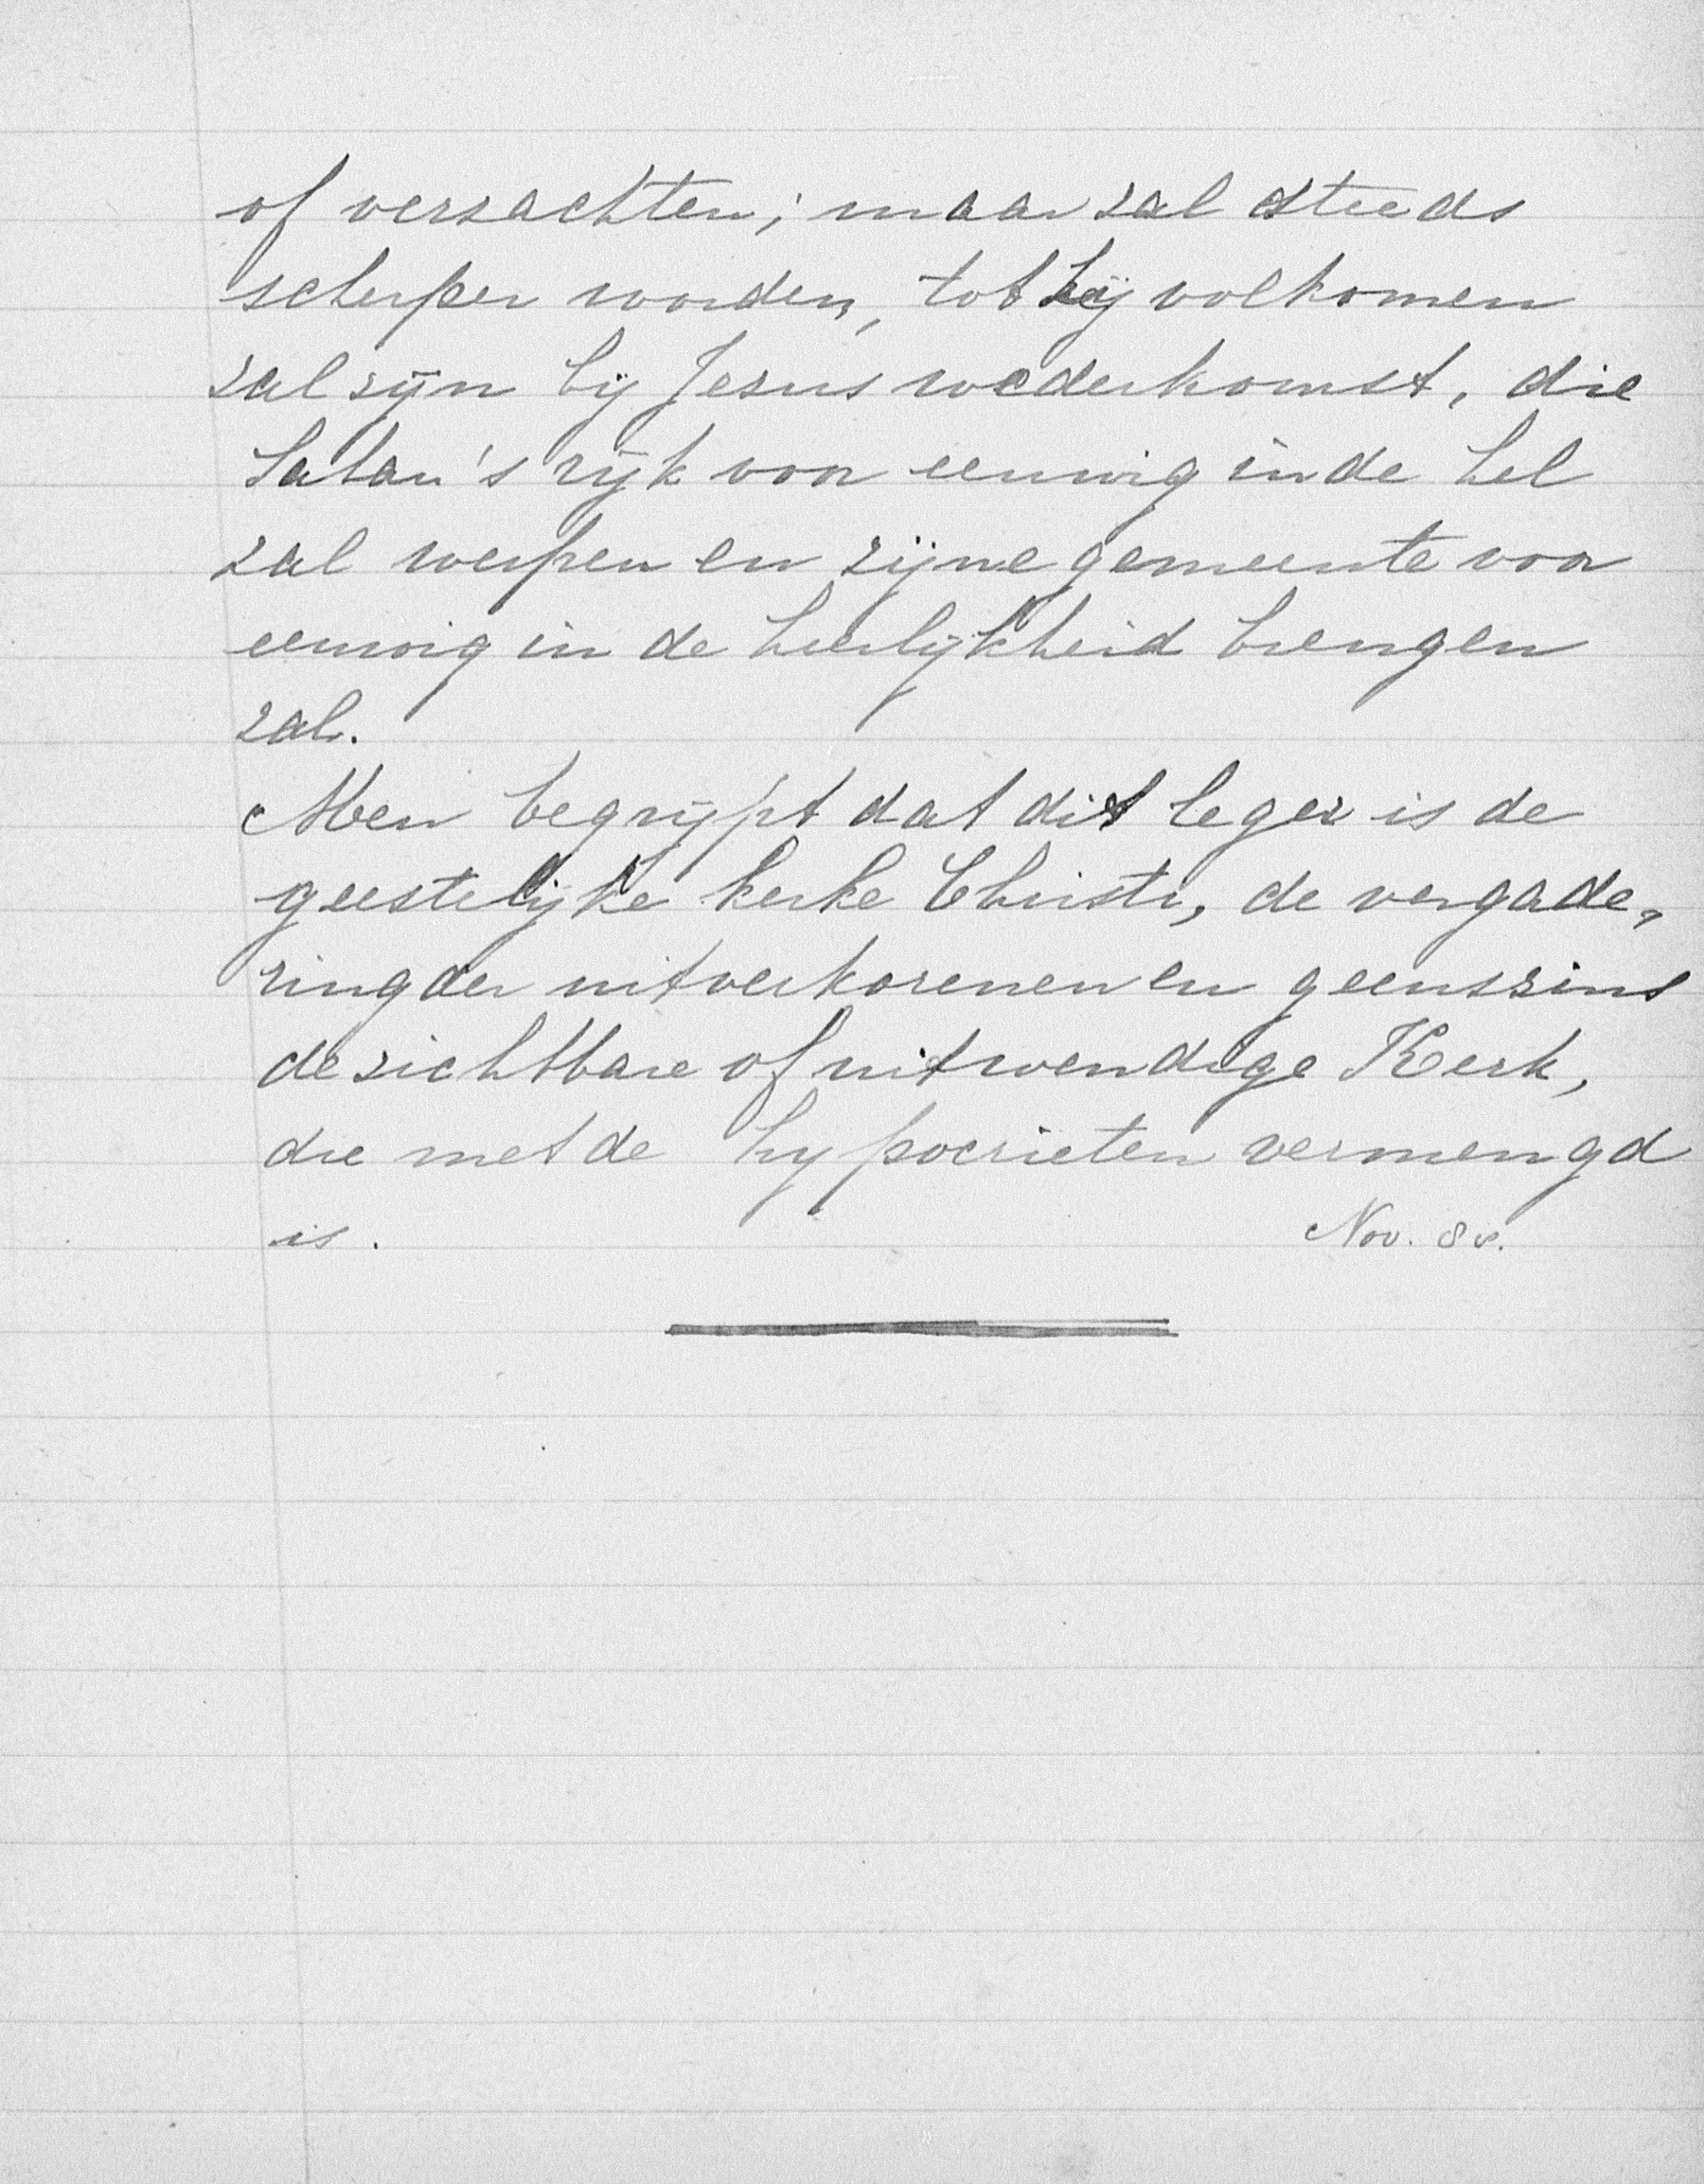 of verzachten; maar zal steeds
scherper worden, tot hij volkomen
zal zijn bij Jezus wederkomst, die
Satan's rijk voor eeuwig in de hel
zal werpen en zijne gemeente voor
eeuwig in de heerlijkheid brengen
zal.
Men begrijpt dat dit leger is de
geestelijke kerke Christi, de vergade„
ring der uitverkorenen en geenszins
de zichtbare of uitwendige Kerk,
die met de hypocrieten vermengd
is.
Nov.